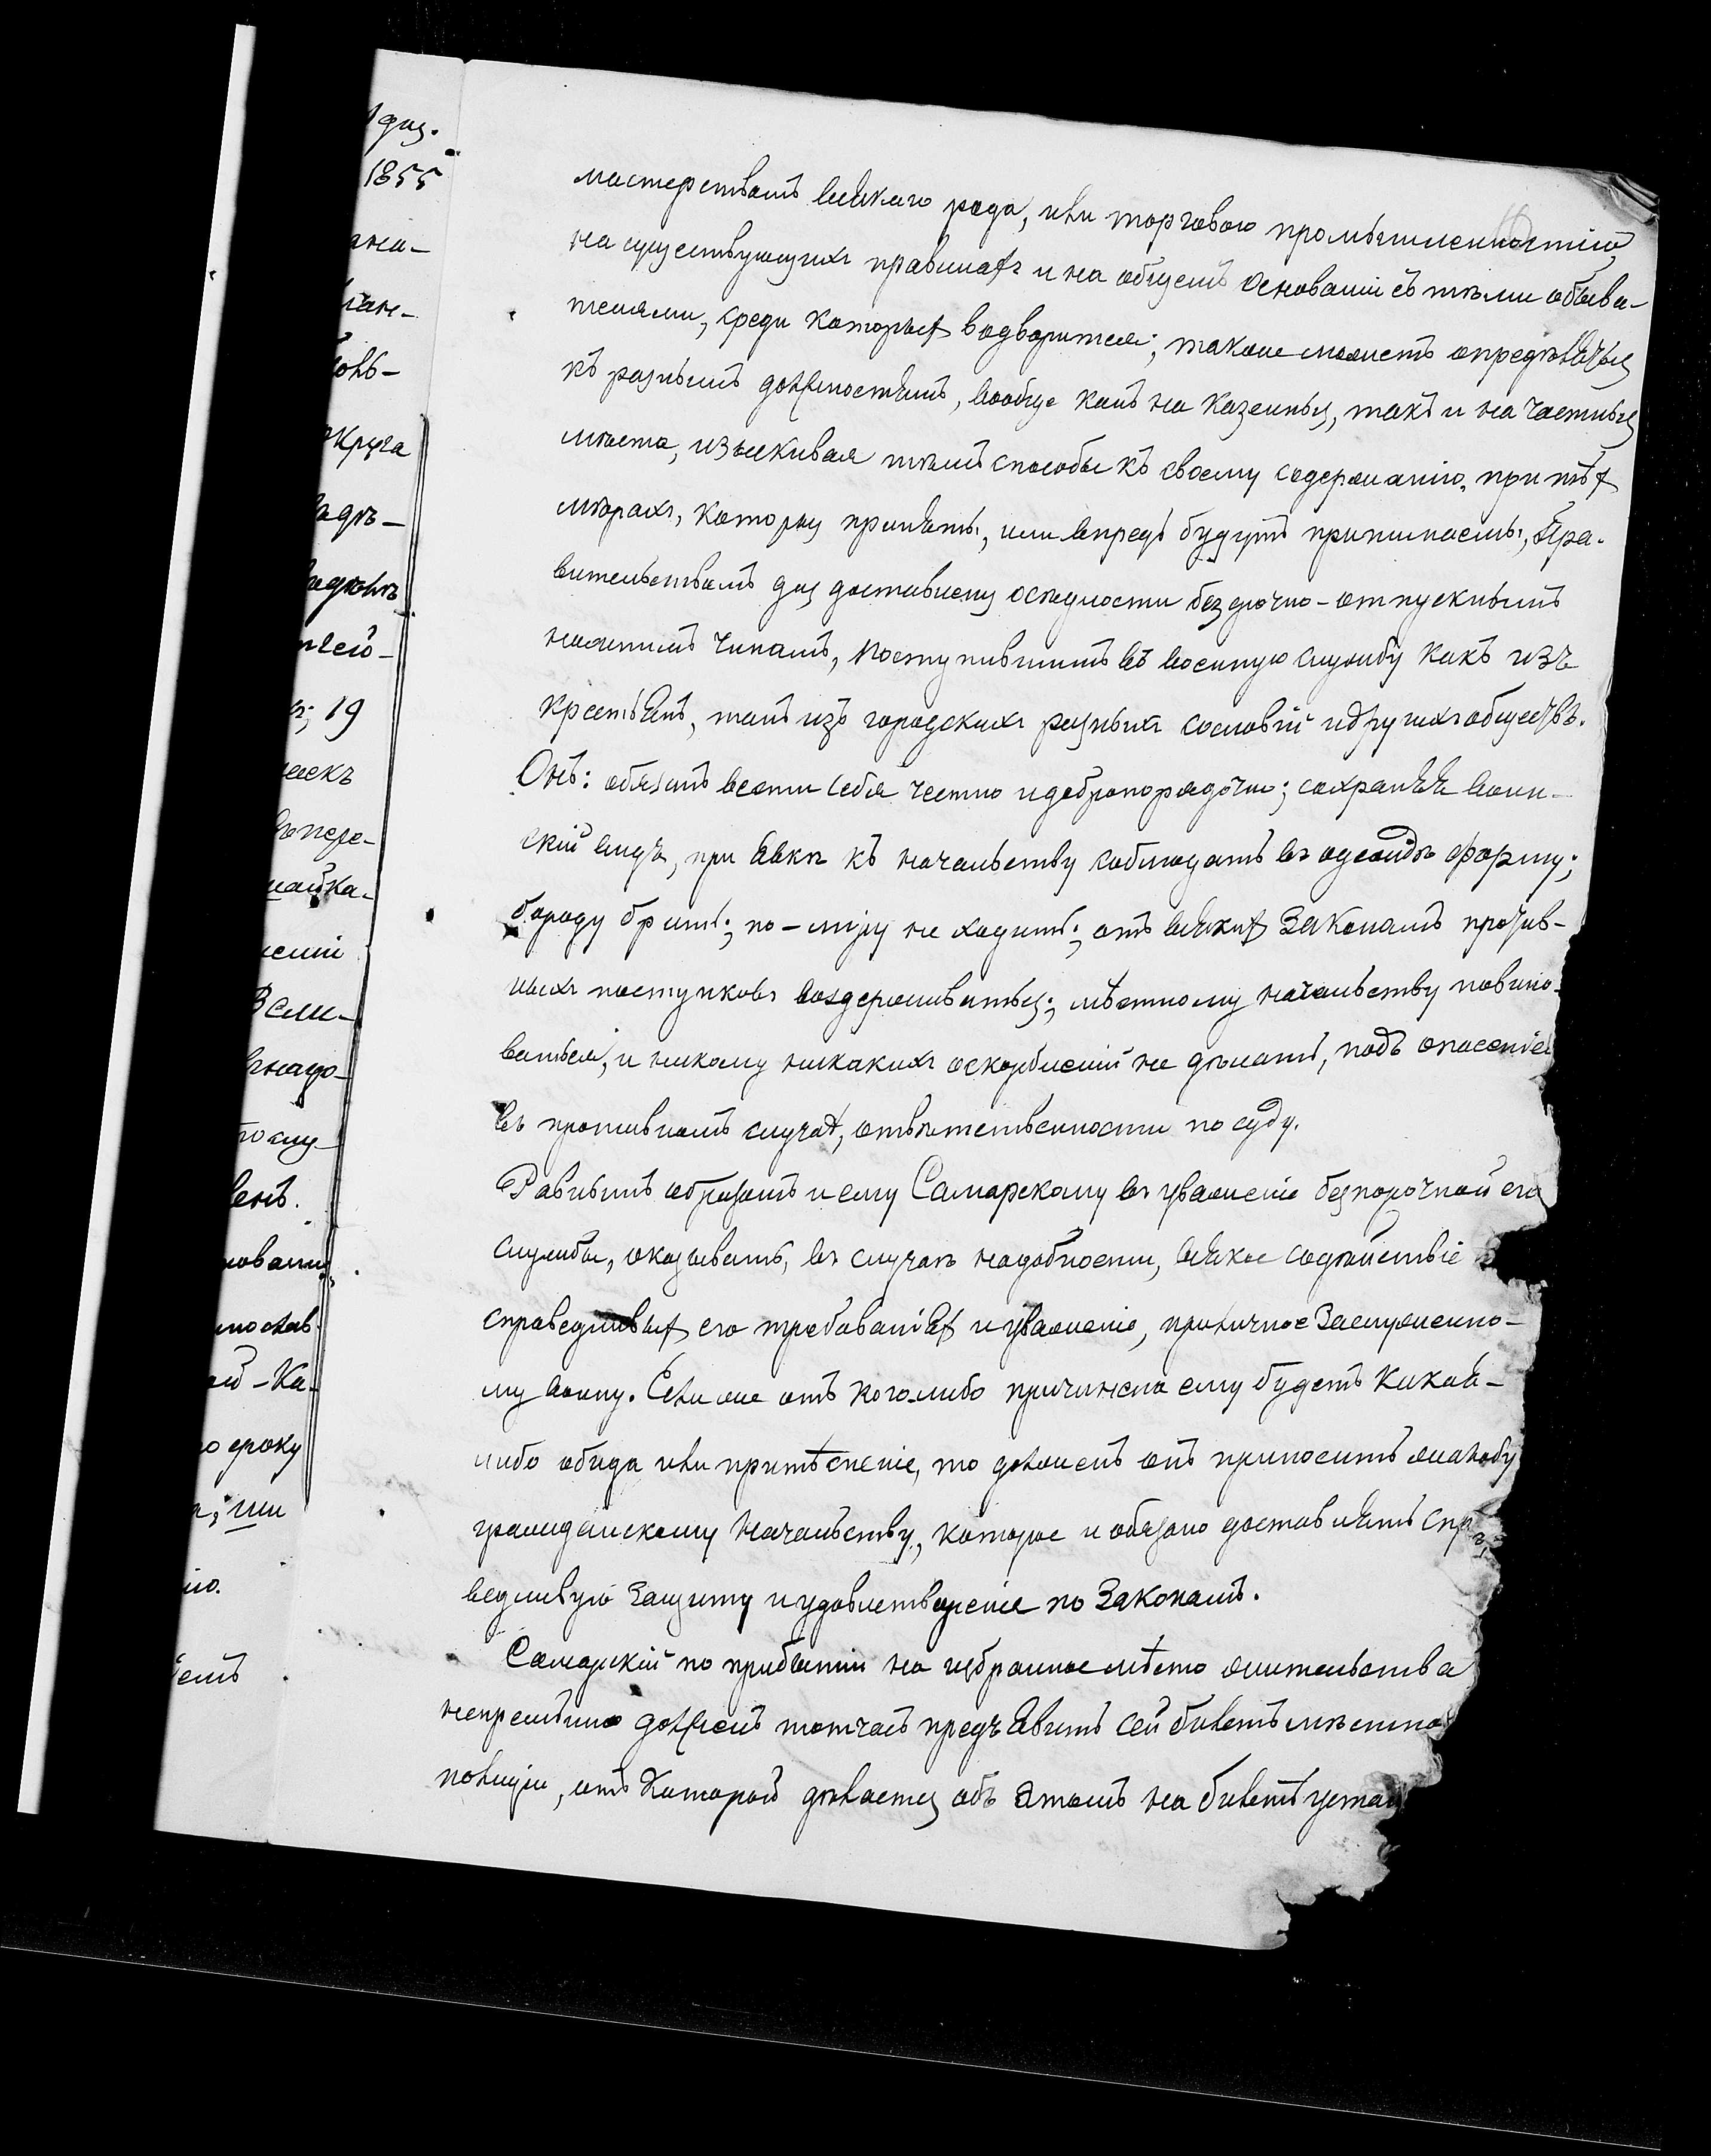 1 диз.
1855
округа
19
мастерствомъ всякаго рода, или торговою промышленностію,
на существующихъ правилахъ и на общемъ основаніи съ тѣми обыва-
телями, среди которыхъ водворится; также можетъ опредѣляться
къ разнымъ должностямъ, вообще какъ на казенныя, такъ и на частныя
мѣста, изыскивая тѣмъ способы къ своему содержанію, при тѣхъ
мѣрахъ, которыя приняты, или впредь будутъ принимаемы, Пра-
вительствомъ для доставленія осѣдлости безсрочно-отпускнымъ
нижнимъ чинамъ, поступившимъ въ военную службу какъ изъ
крестьянъ, такъ изъ городскихъ разныхъ сословій и другихъ обществъ.
Онъ: обязанъ вести себя честно и добропорядочно; сохраняя воин-
скій видъ, при явкѣ къ начальству соблюдать въ одеждѣ форму;
бороду брить; по-міру не ходить; отъ всякихъ законамъ против-
ныхъ поступковъ воздерживаться; мѣстному начальству повино-
ваться, и никому никакихъ оскорбленій не дѣлать, подъ опасеніе
въ противномъ случаѣ, отвѣтственности по суду.
Равнымъ образомъ и ему Самарскому въ уваженіе безпорочной его
службы, оказывать, въ случаѣ надобности, всякое содѣйствіе в
справедливыхъ его требованіяхъ и уваженіе, приличное заслуженно-
му воину. Если же отъ кого-либо причинена ему будетъ какая-
либо обида или притѣсненіе, то долженъ онъ приносить жалобу
гражданскому начальству, которое и обязано доставлять спра-
ведливую защиту и удовлетвореніе по законамъ.
Самарскій по прибытіи на избранное мѣсто жительства
непремѣнно долженъ тотчасъ предъявить сей билетъ мѣстно
полиціи, отъ которой дѣлается объ этомъ на билетѣ устан